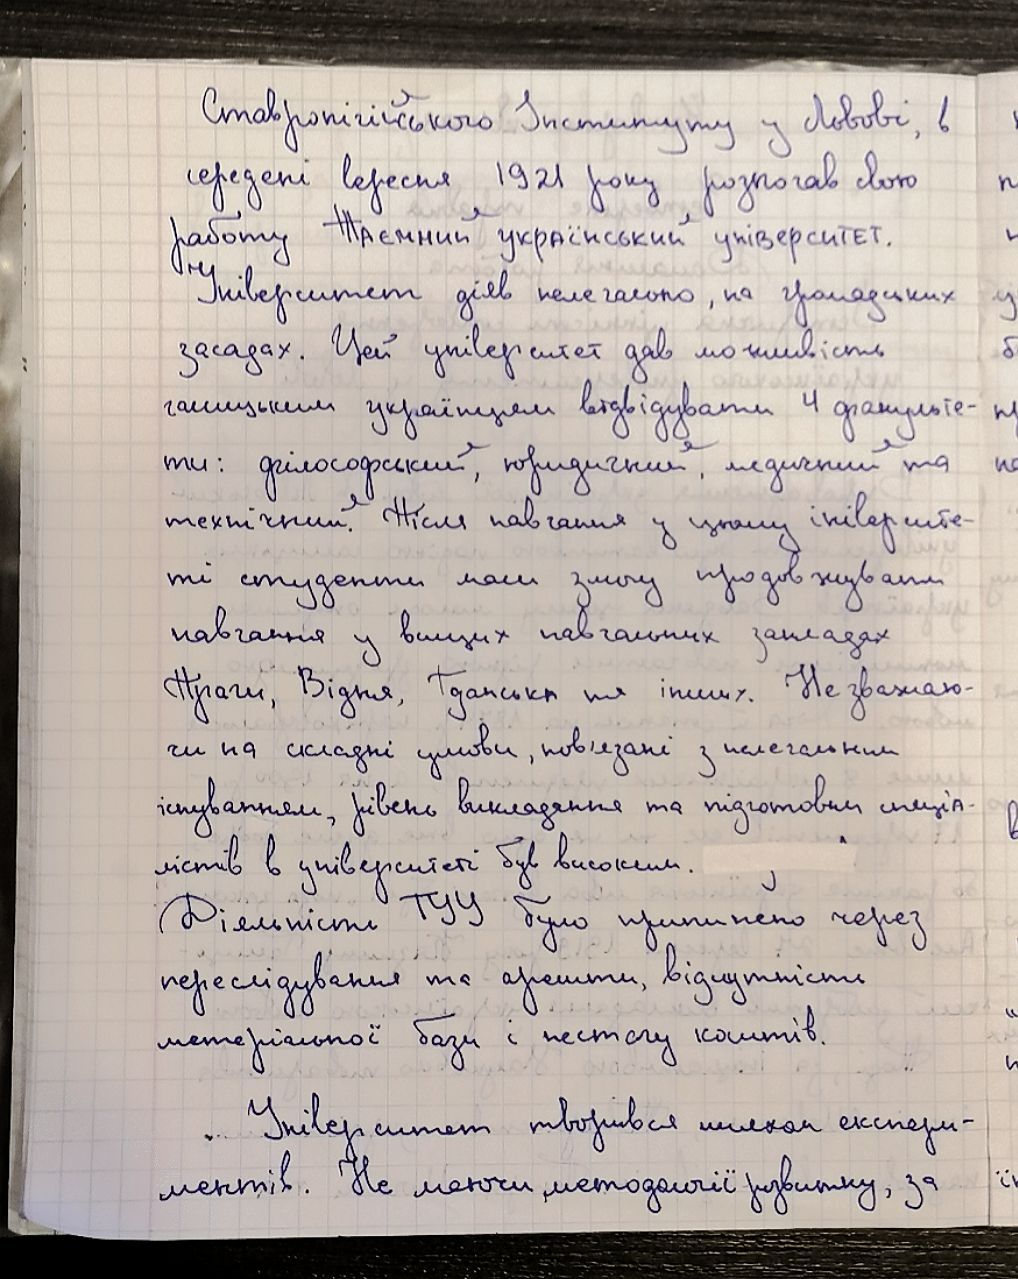 Ставропігійського Інституту у Львові, в
середені вересня 1921 року розпочав свою
работу Таємний український університет.
Університет діяв нелегально, на громадських
засадах. Цей університет дав можливість
галицьким українцям відвідувати 4 факульте-
ти: філософський, юридичний, медичний та
технічний. Після навчання у цьому університе-
ті студенти мали змогу продовжувати
навчання у вищих навчальних закладах
Праги, Відня, Гданська та інших. Не зважаю-
чи на складні умови, пов'язані з нелегальним
існуванням, рівень викладання та підготовки спеціа-
лістів в університеті був високим.
Діяльність ТУУ було припинено через
переслідування та арешти, відсутність
матеріальної бази і нестачу коштів.
Університет творився шляхом експери-
ментів. Не маючи методології розвитку, за